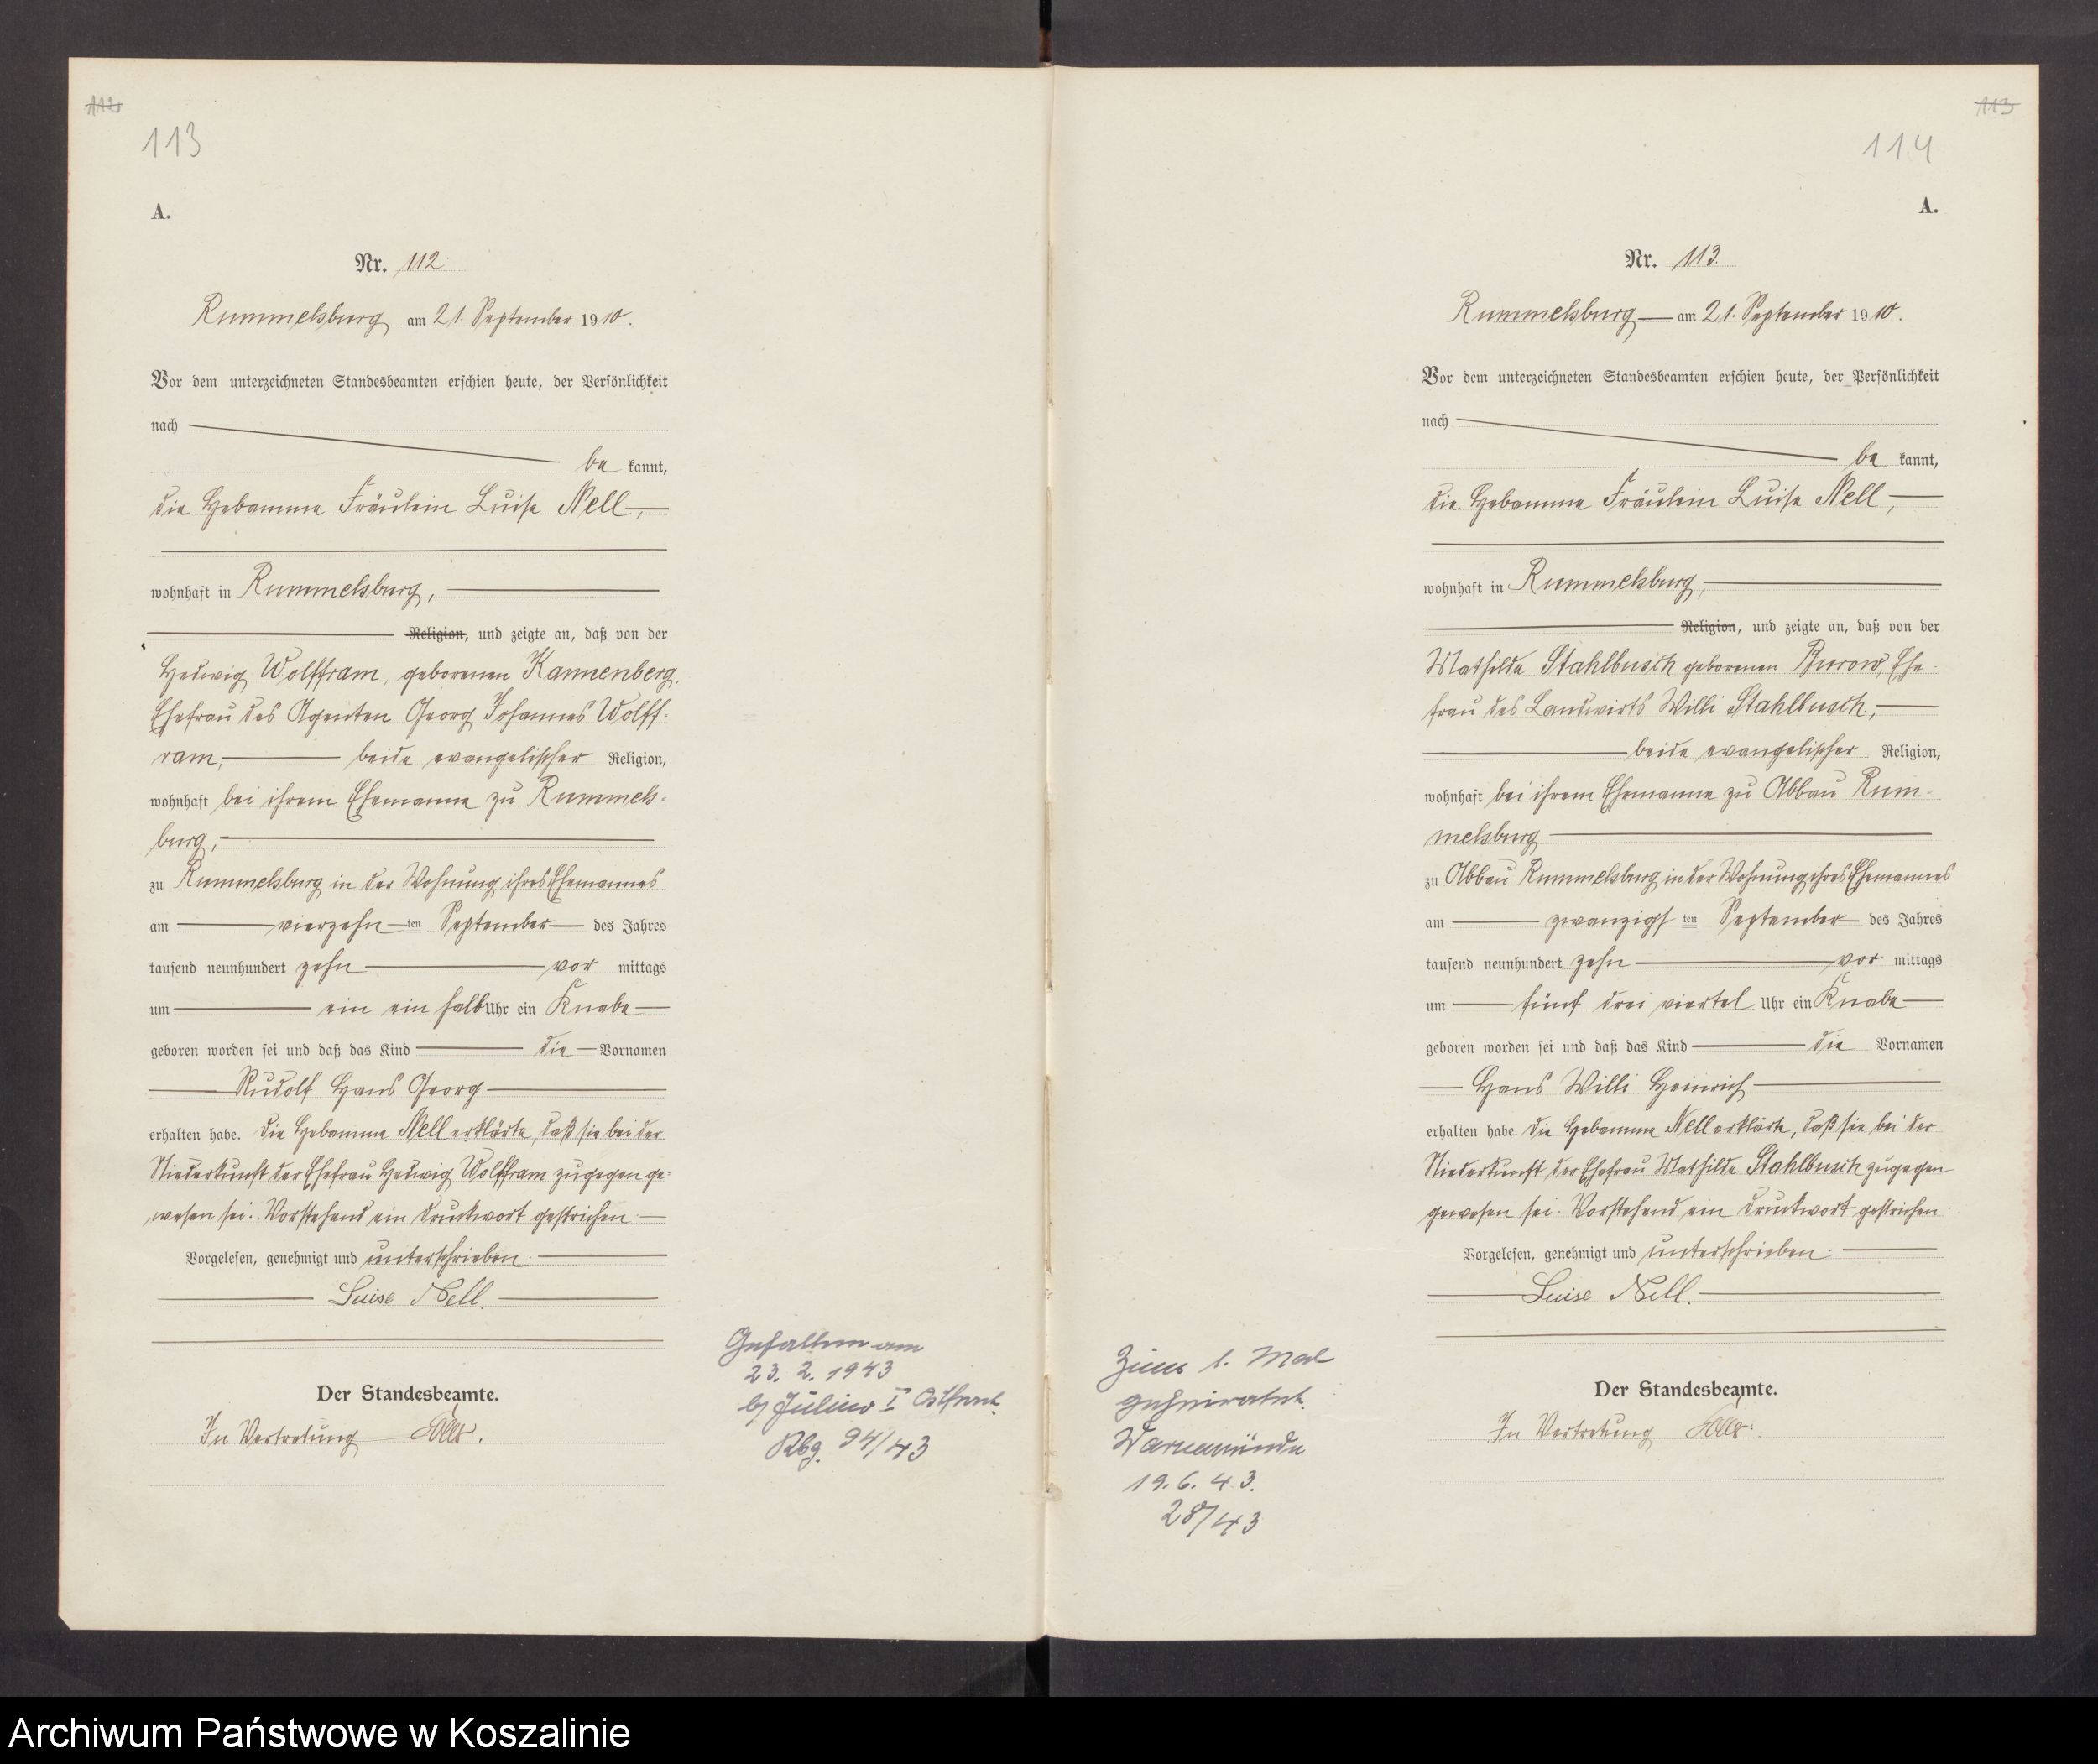 112
113
A.
Nr. 112.
Rummelsburg am 21. September 1910.
Vor dem unterzeichneten Standesbeamten erschien heute, der Persönlichkeit
nach
be kannt,
die Hebamme Fräulein Luise Nell,
wohnhaft in Rummelsburg,
Religion, und zeigte an, daß von der
Hedwig Wolffram, geborenen Kannenberg,
Ehefrau des Agenten Georg Johannes Wolff-
ram, beide evangelischer Religion,
wohnhaft bei ihrem Ehemanne zu Rummels-
burg,
zu Rummelsburg in der Wohnung ihres Ehemannes
am vierzehn ten September des Jahres
tausend neunhundert zehn vor mittags
um ein ein halb Uhr ein Knabe
geboren worden sei und daß das Kind die Vornamen
Rudolf Hans Georg
erhalten habe. Die Hebamme Nell erklärte, daß sie bei der
Niederkunft der Ehefrau Hedwig Wolffram zugegen ge-
wesen sei. Vorstehend ein Druckwort gestrichen.
Vorgelesen, genehmigt und unterschrieben.
Luise Nell.
Der Standesbeamte.
In Vertretung
Gefallen am
23. 2. 1943
b/ I Ostfront.
Rbg. 94/43
113
114
A.
Nr. 113.
Rummelsburg am 21. September 1910.
Vor dem unterzeichneten Standesbeamten erschien heute, der Persönlichkeit
nach
be kannt,
die Hebamme Fräulein Luise Nell,
wohnhaft in Rummelsburg,
Religion, und zeigte an, daß von der
Mathilde Stahlbusch geborenen Burow, Ehe-
frau des Landwirts Willi Stahlbusch,
beide evangelischer Religion,
wohnhaft bei ihrem Ehemanne zu Abbau Rum-
melsburg
zu Abbau Rummelsburg in der Wohnung ihres Ehemannes
am zwanzigs ten September des Jahres
tausend neunhundert zehn vor mittags
um fünf drei viertel Uhr ein Knabe
geboren worden sei und daß das Kind die Vornamen
Hans Willi Heinrich
erhalten habe. Die Hebamme Nell erklärte, daß sie bei der
Niederkunft der Ehefrau Mathilde Stahlbusch zugegen
gewesen sei. Vorstehend ein Druckwort gestrichen.
Vorgelesen, genehmigt und unterschrieben.
Luise Nell.
Der Standesbeamte.
In Vertretung
Zum 1. Mal
geheiratet.
Warnemünde
19. 6. 43.
28/43
Archiwum Państwowe w Koszalinie